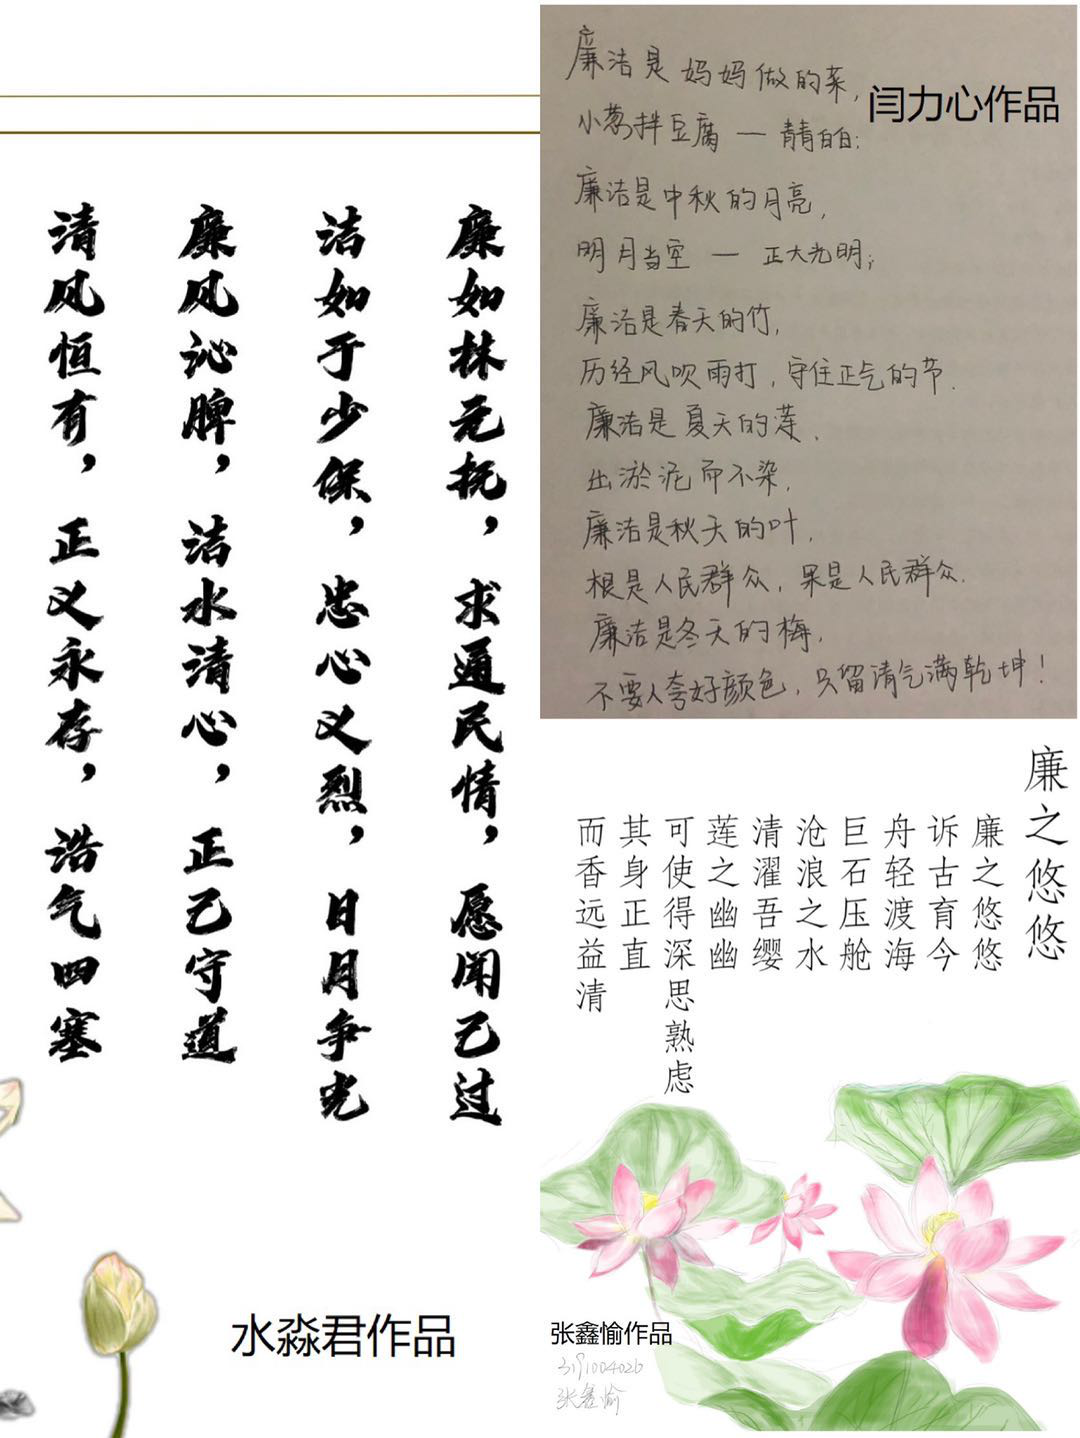 廉如林元抚，求通民情，愿闻己过
洁如于少保，忠心义烈，日月争光
廉风沁脾，洁水清心，正己守道
清风恒有，正义永存，浩气四塞
水淼君作品
廉洁是妈妈做的菜，
小葱拌豆腐 — 青青白白；
廉洁是中秋的月亮，
明月当空 — 正大光明；
廉洁是春天的竹，
历经风吹雨打，守住正气的节．
廉洁是夏天的莲，
出淤泥而不染．
廉洁是秋天的叶，
根是人民群众，果是人民群众．
廉洁是冬天的梅，
不要人夸好颜色，只留清气满乾坤！
闫力心作品
廉之悠悠
廉之悠悠
诉古育今
舟轻渡海
巨石压舱
沧浪之水
清濯吾缨
莲之幽幽
可使得深思熟虑
其身正直
而香远益清
张鑫愉作品
3191004026
张鑫愉